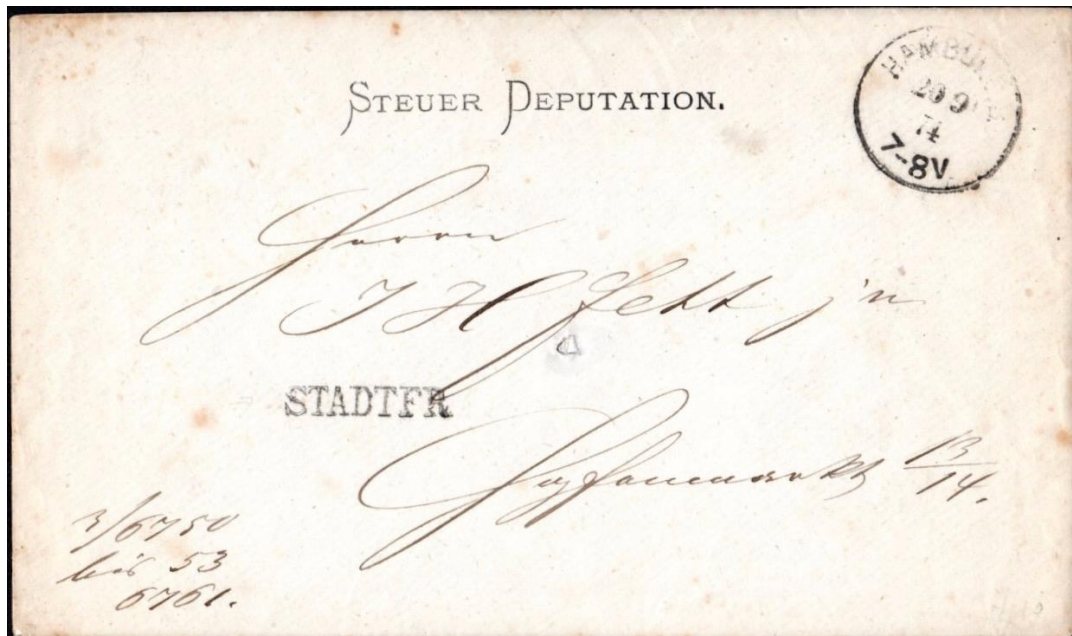 STEUER DEPUTATION.
HAMBURG
20 9
74
7-8V
Herrn
J H Fett jn
STADTFR
Hopfenmarkt 13/14.
3/6750
bis 53
6761.